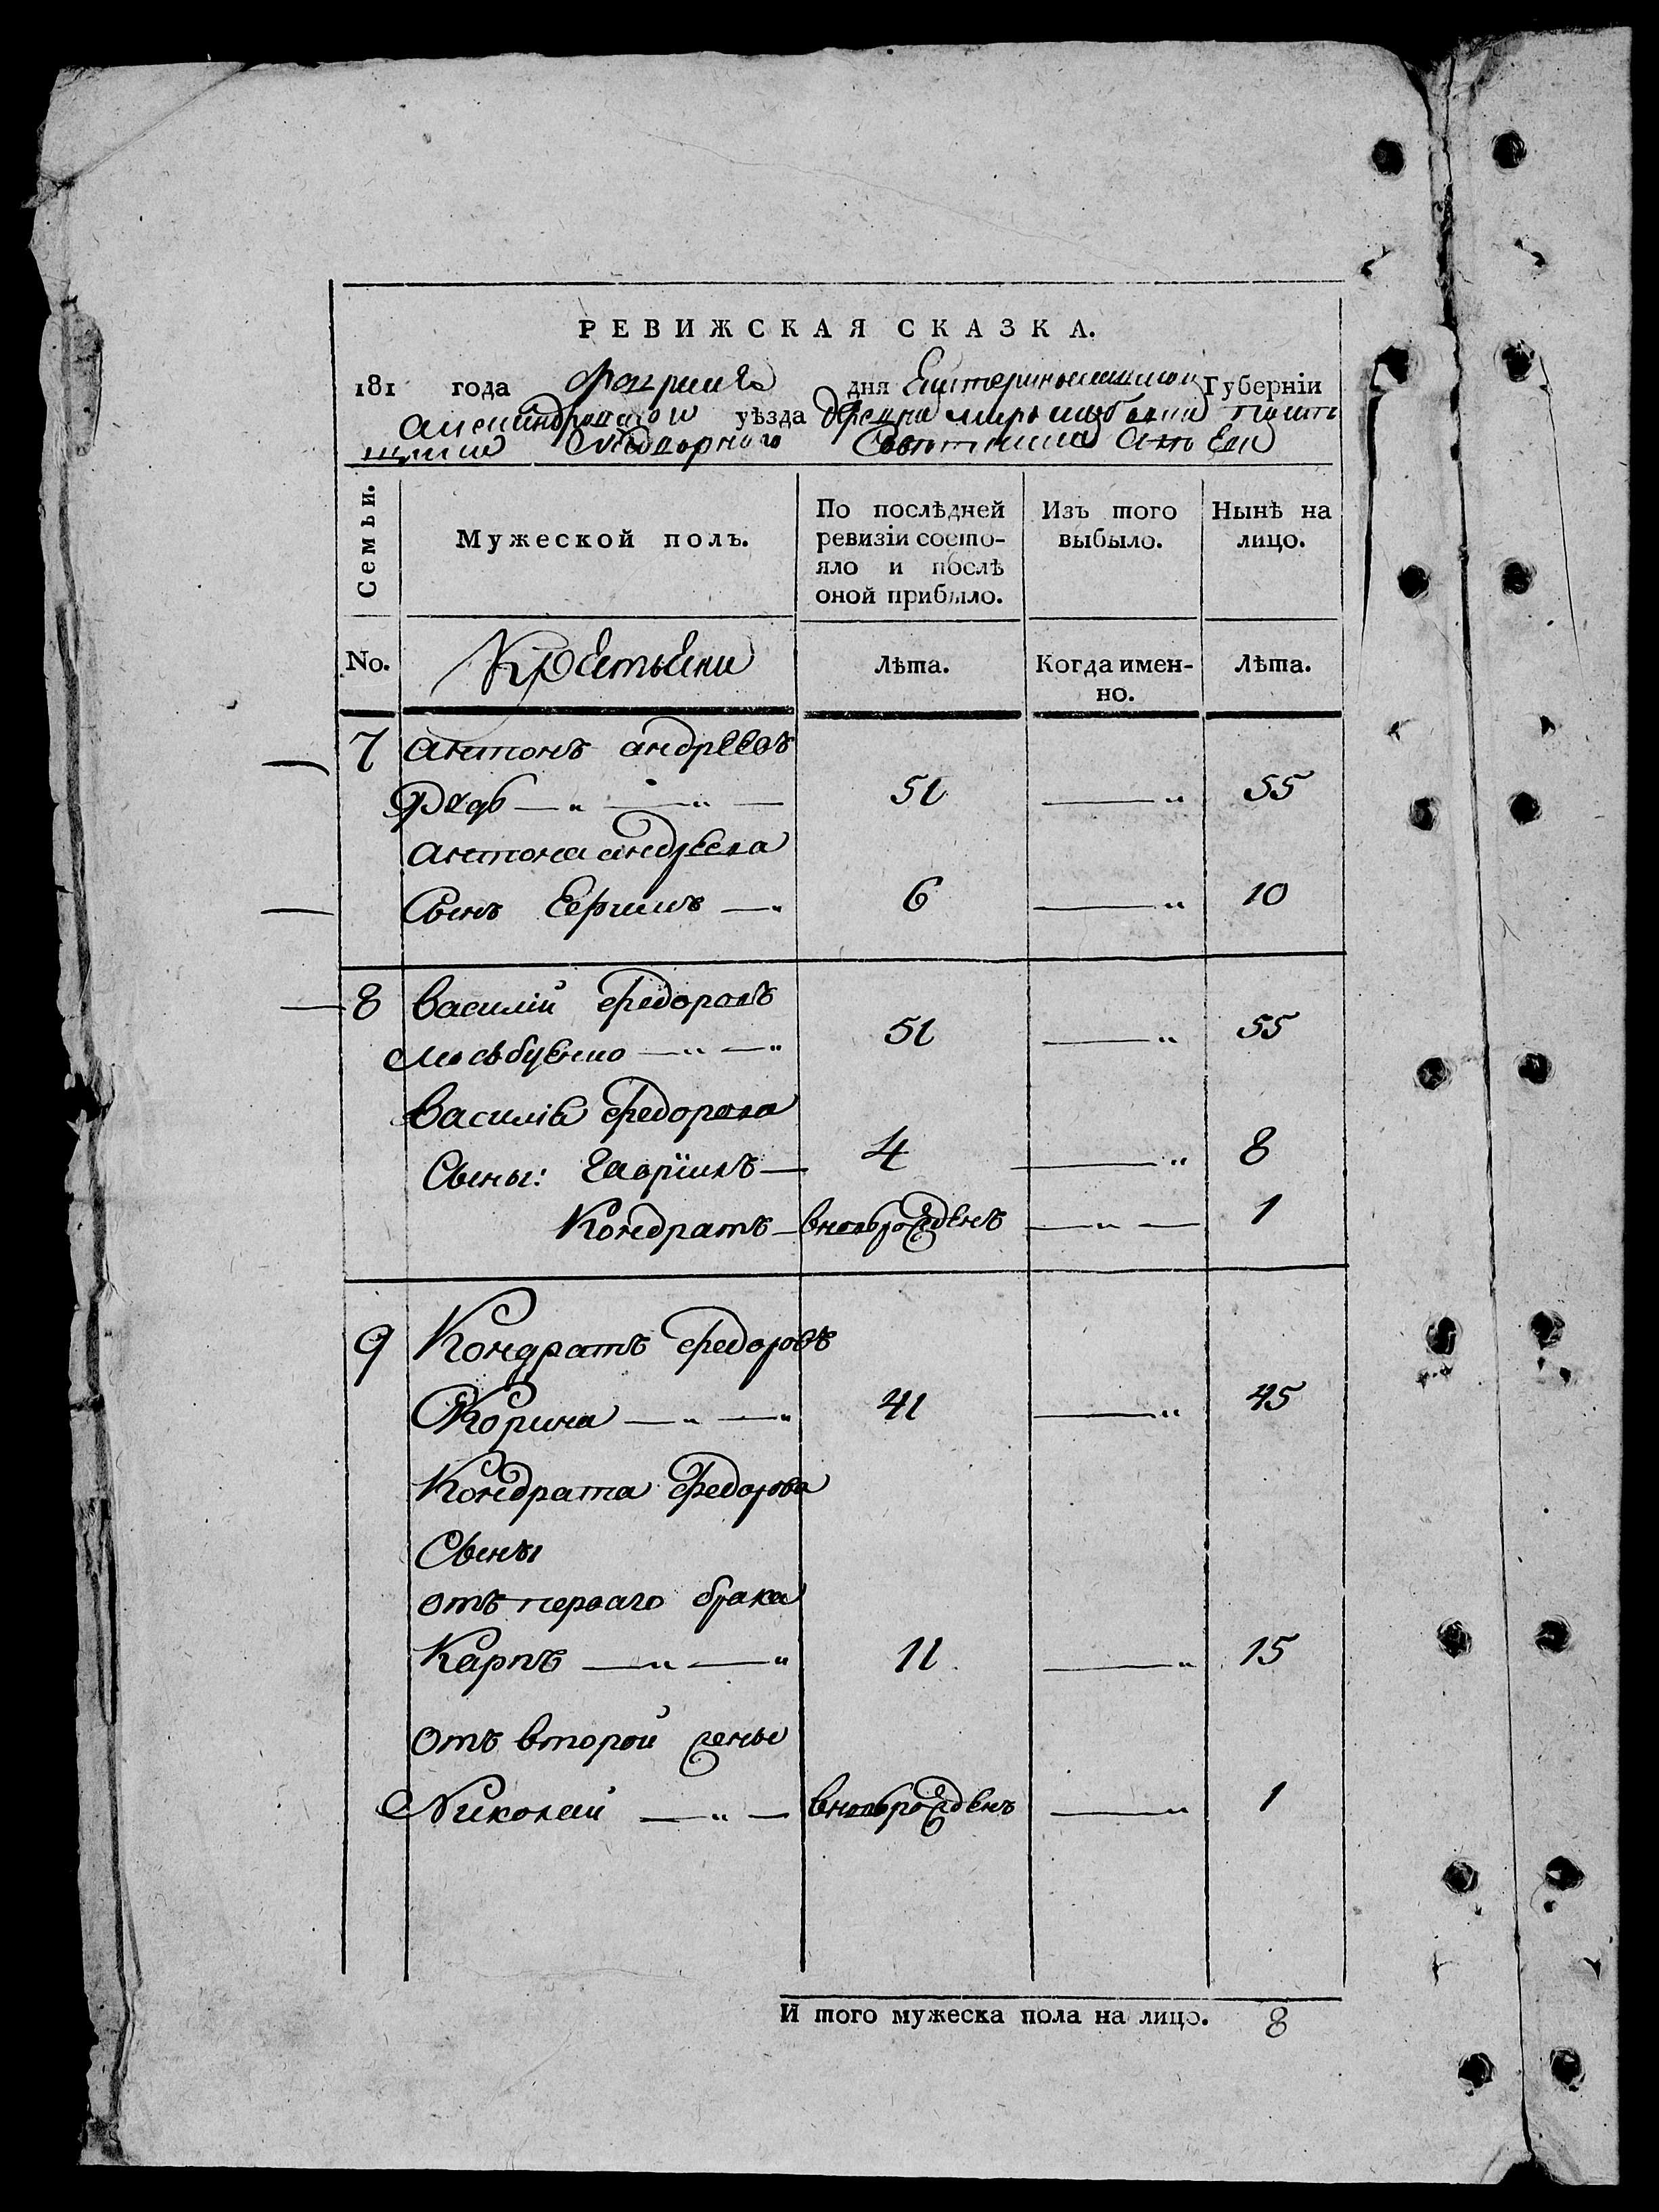 РЕВИЖСКАЯ СКАЗКА.
181 года дня Губерніи
уѣзда
Семьи.
Мужеской полъ.
По послѣдней ревизіи состо-
яло и послѣ
оной прибыло.
Изъ того
выбыло.
Нынѣ на
лицо.
No.
Крестьени
Лѣта.
Когда имен-
но.
Лѣта.
7 Антонъ андреевъ
51 55
антона андреева
Сынъ 6 10
8 Василій Федоровъ
51 55
Василія Федорова
Сыны: Гаврiилъ 4 8
Кондратъ вновьрожденъ 1
9 Кондратъ Федоровъ
41 45
Кондрата Федорова
Сыны
отъ перваго брака
Карпъ 11 15
Отъ второй жены
Николай вновьрожденъ 1
И того мужеска пола на лицо. 8